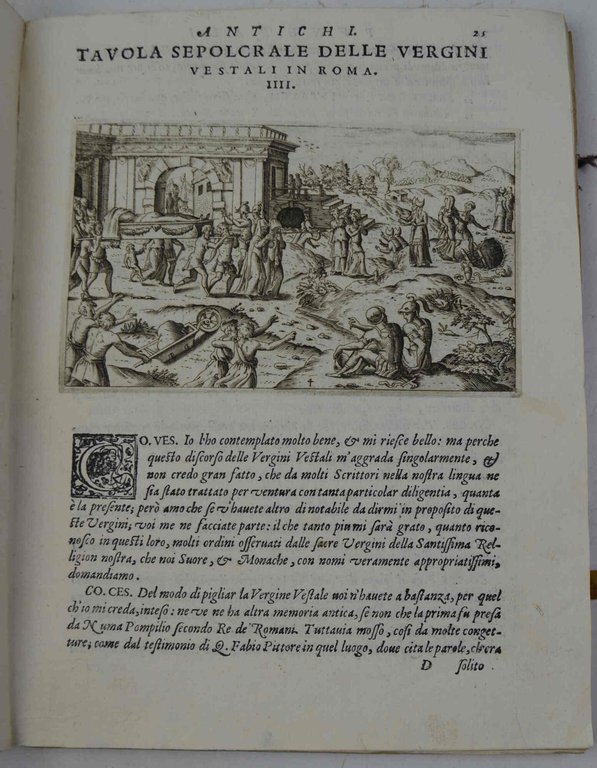 ANTICHI. 25
TAVOLA SEPOLCRALE DELLE VERGINI
VESTALI IN ROMA.
IIII.
CO. VES. Io l'ho contemplato molto bene, & mi riesce bello: ma perche
questo discorso delle Vergini Vestali m'aggrada singolarmente, &
non credo gran fatto, che da molti Scrittori nella nostra lingua ne
sia stato trattato per ventura con tanta particolar diligentia, quanta
è la presente; però amo che se v'hauete altro di notabile da dirmi in proposito di que-
ste Vergini; voi me ne facciate parte: il che tanto piu mi sarà grato, quanto rico-
nosco in questi loro, molti ordini osseruati dalle sacre Vergini della Santissima Rel-
ligion nostra, che noi Suore, & Monache, con nomi veramente appropriatissimi,
domandiamo.
CO. CES. Del modo di pigliar la Vergine Vestale voi n'hauete a bastanza, per quel
ch'io mi creda, inteso: ne ve ne ha altra memoria antica, se non che la prima fu presa
da Numa Pompilio secondo Re de' Romani. Tuttauia mosso, così da molte conget-
ture; come dal testimonio di Q. Fabio Pittore in quel luogo, doue cita le parole, ch'era
D solito